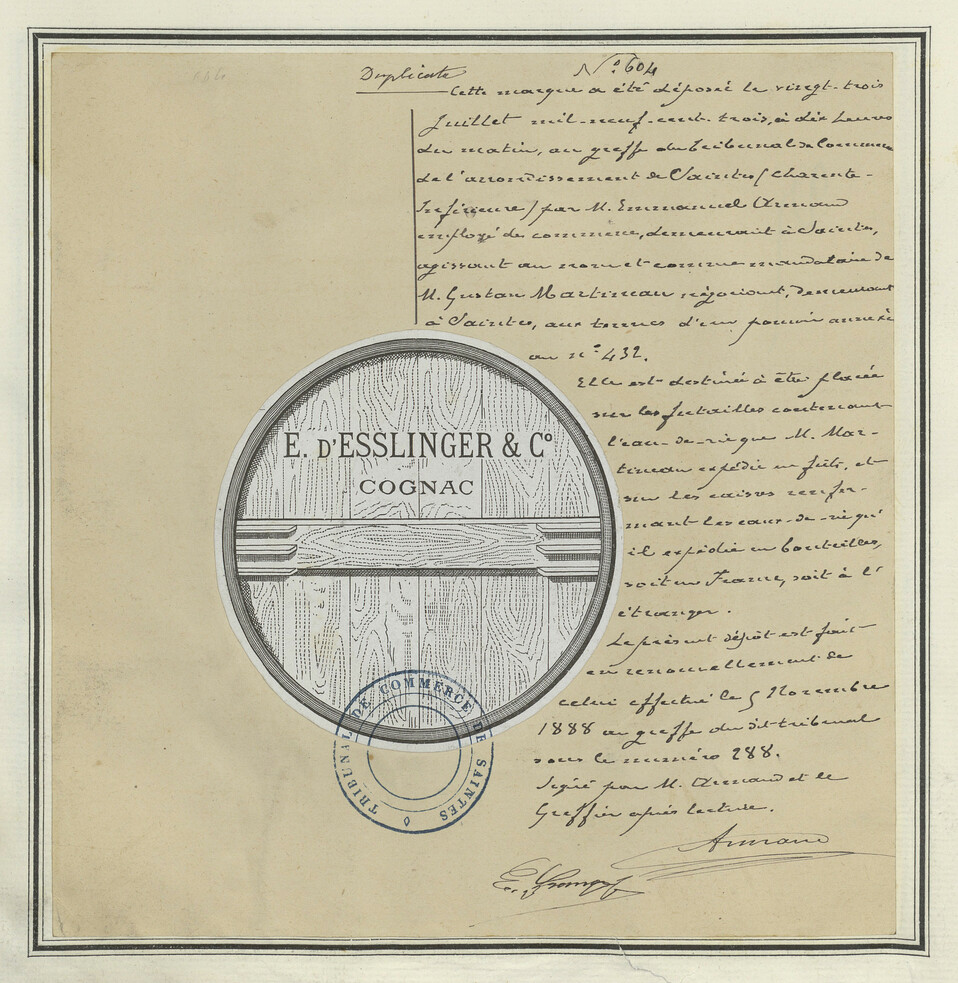 Duplicata
N° 604
Cette marque a été déposée le vingt-trois
Juillet mil-neuf-cent-trois, à dix heures
du matin, au greffe du tribunal de Commerce
de l'arrondissement de Saintes (Charente-
Inférieure) par M. Emmanuel Armand
employé de commerce, demeurant à Saintes,
agissant au nom et comme mandataire de
M. Gustave Martineau négociant, demeurant
à Saintes, aux termes d'un pouvoir annexé
au n° 432.
Elle est destinée à être placée
sur les futailles contenant
l'eau-de-vie que M. Mar-
tineau expédie en fûts, et
sur les caisses renfer-
mant les eaux-de-vie qu'
il expédie en bouteilles,
soit en France, soit à l'
étranger.
Le présent dépôt est fait
en renouvellement de
celui effectué le 5 Novembre
1888 au greffe du dit tribunal
sous le numéro 288.
Signé par M. Armand et le
Greffier après lecture.
Armand
E. D'ESSLINGER & Co
COGNAC
TRIBUNAL DE COMMERCE DE SAINTES